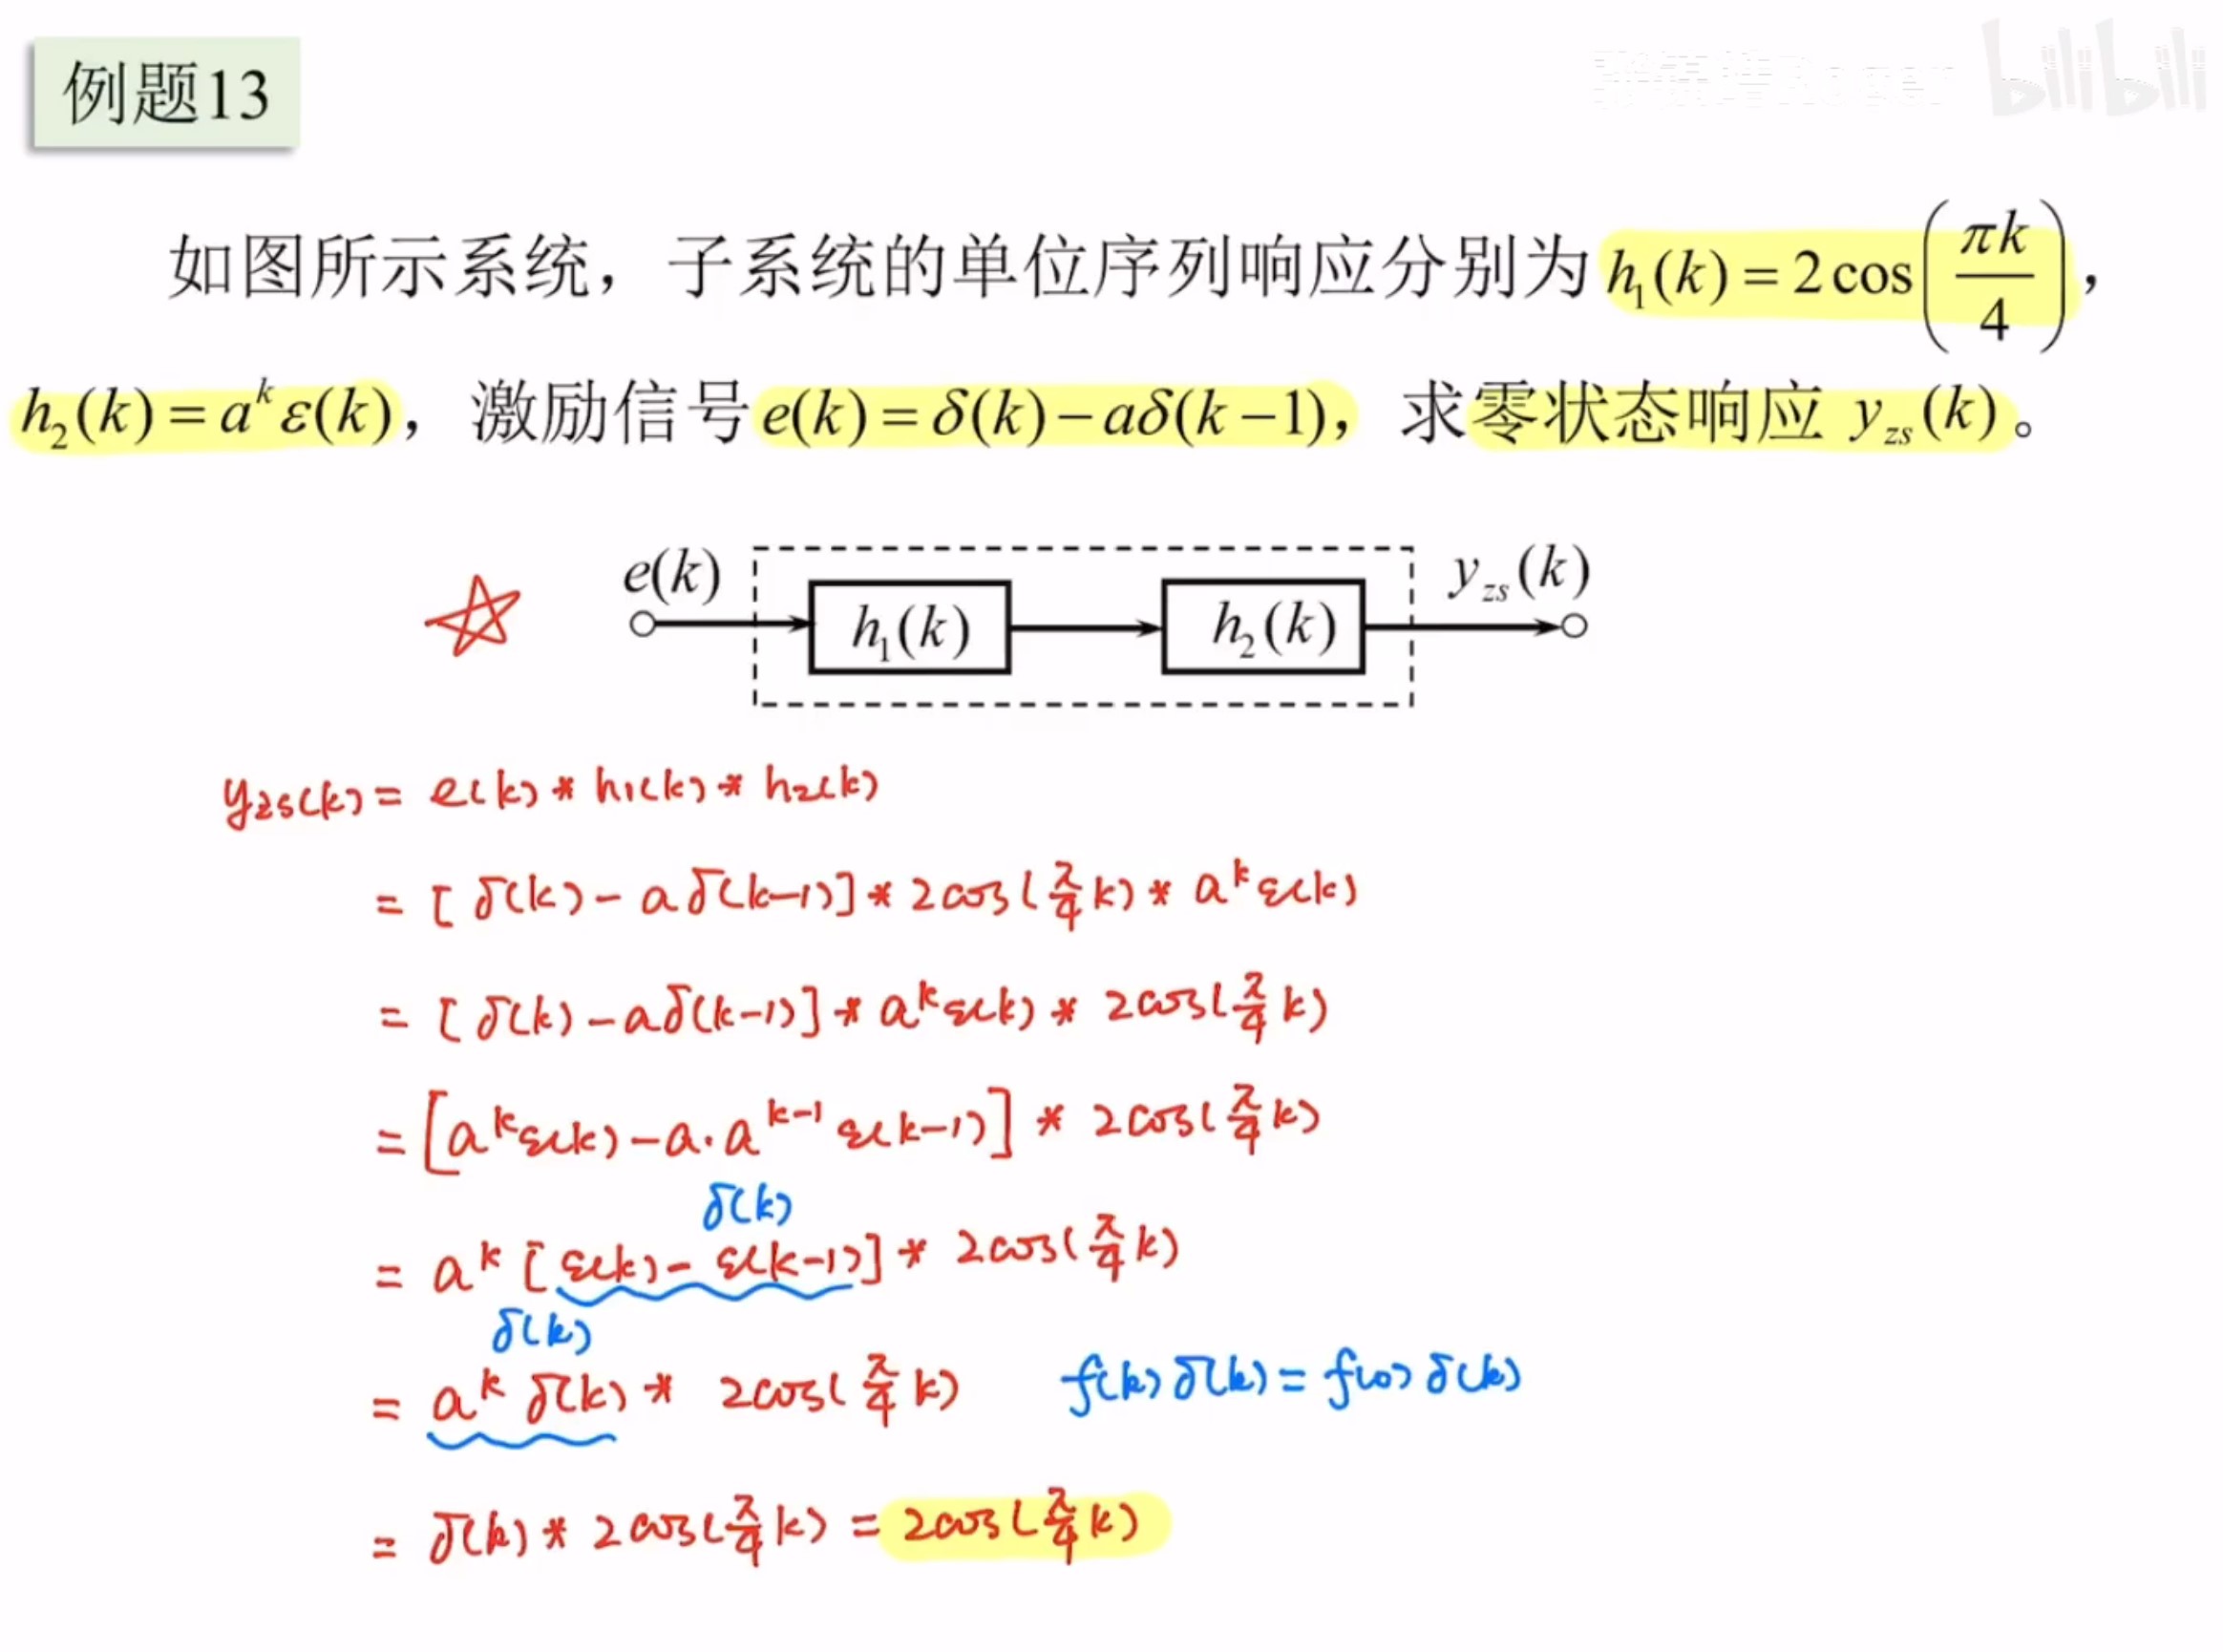 bilibili
例题13
如图所示系统，子系统的单位序列响应分别为 h₁(k) = 2cos(πk/4)，
h₂(k) = aᵏε(k)，激励信号 e(k) = δ(k) − aδ(k−1)，求零状态响应 y_zs(k)。
e(k) h₁(k) h₂(k) y_zs(k)
y_zs(k) = e(k) * h₁(k) * h₂(k)
= [δ(k) − aδ(k−1)] * 2cos(π/4 k) * aᵏε(k)
= [δ(k) − aδ(k−1)] * aᵏε(k) * 2cos(π/4 k)
= [aᵏε(k) − a·aᵏ⁻¹ε(k−1)] * 2cos(π/4 k)
δ(k)
= aᵏ[ε(k) − ε(k−1)] * 2cos(π/4 k)
δ(k)
= aᵏδ(k) * 2cos(π/4 k) f(k)δ(k) = f(0)δ(k)
= δ(k) * 2cos(π/4 k) = 2cos(π/4 k)